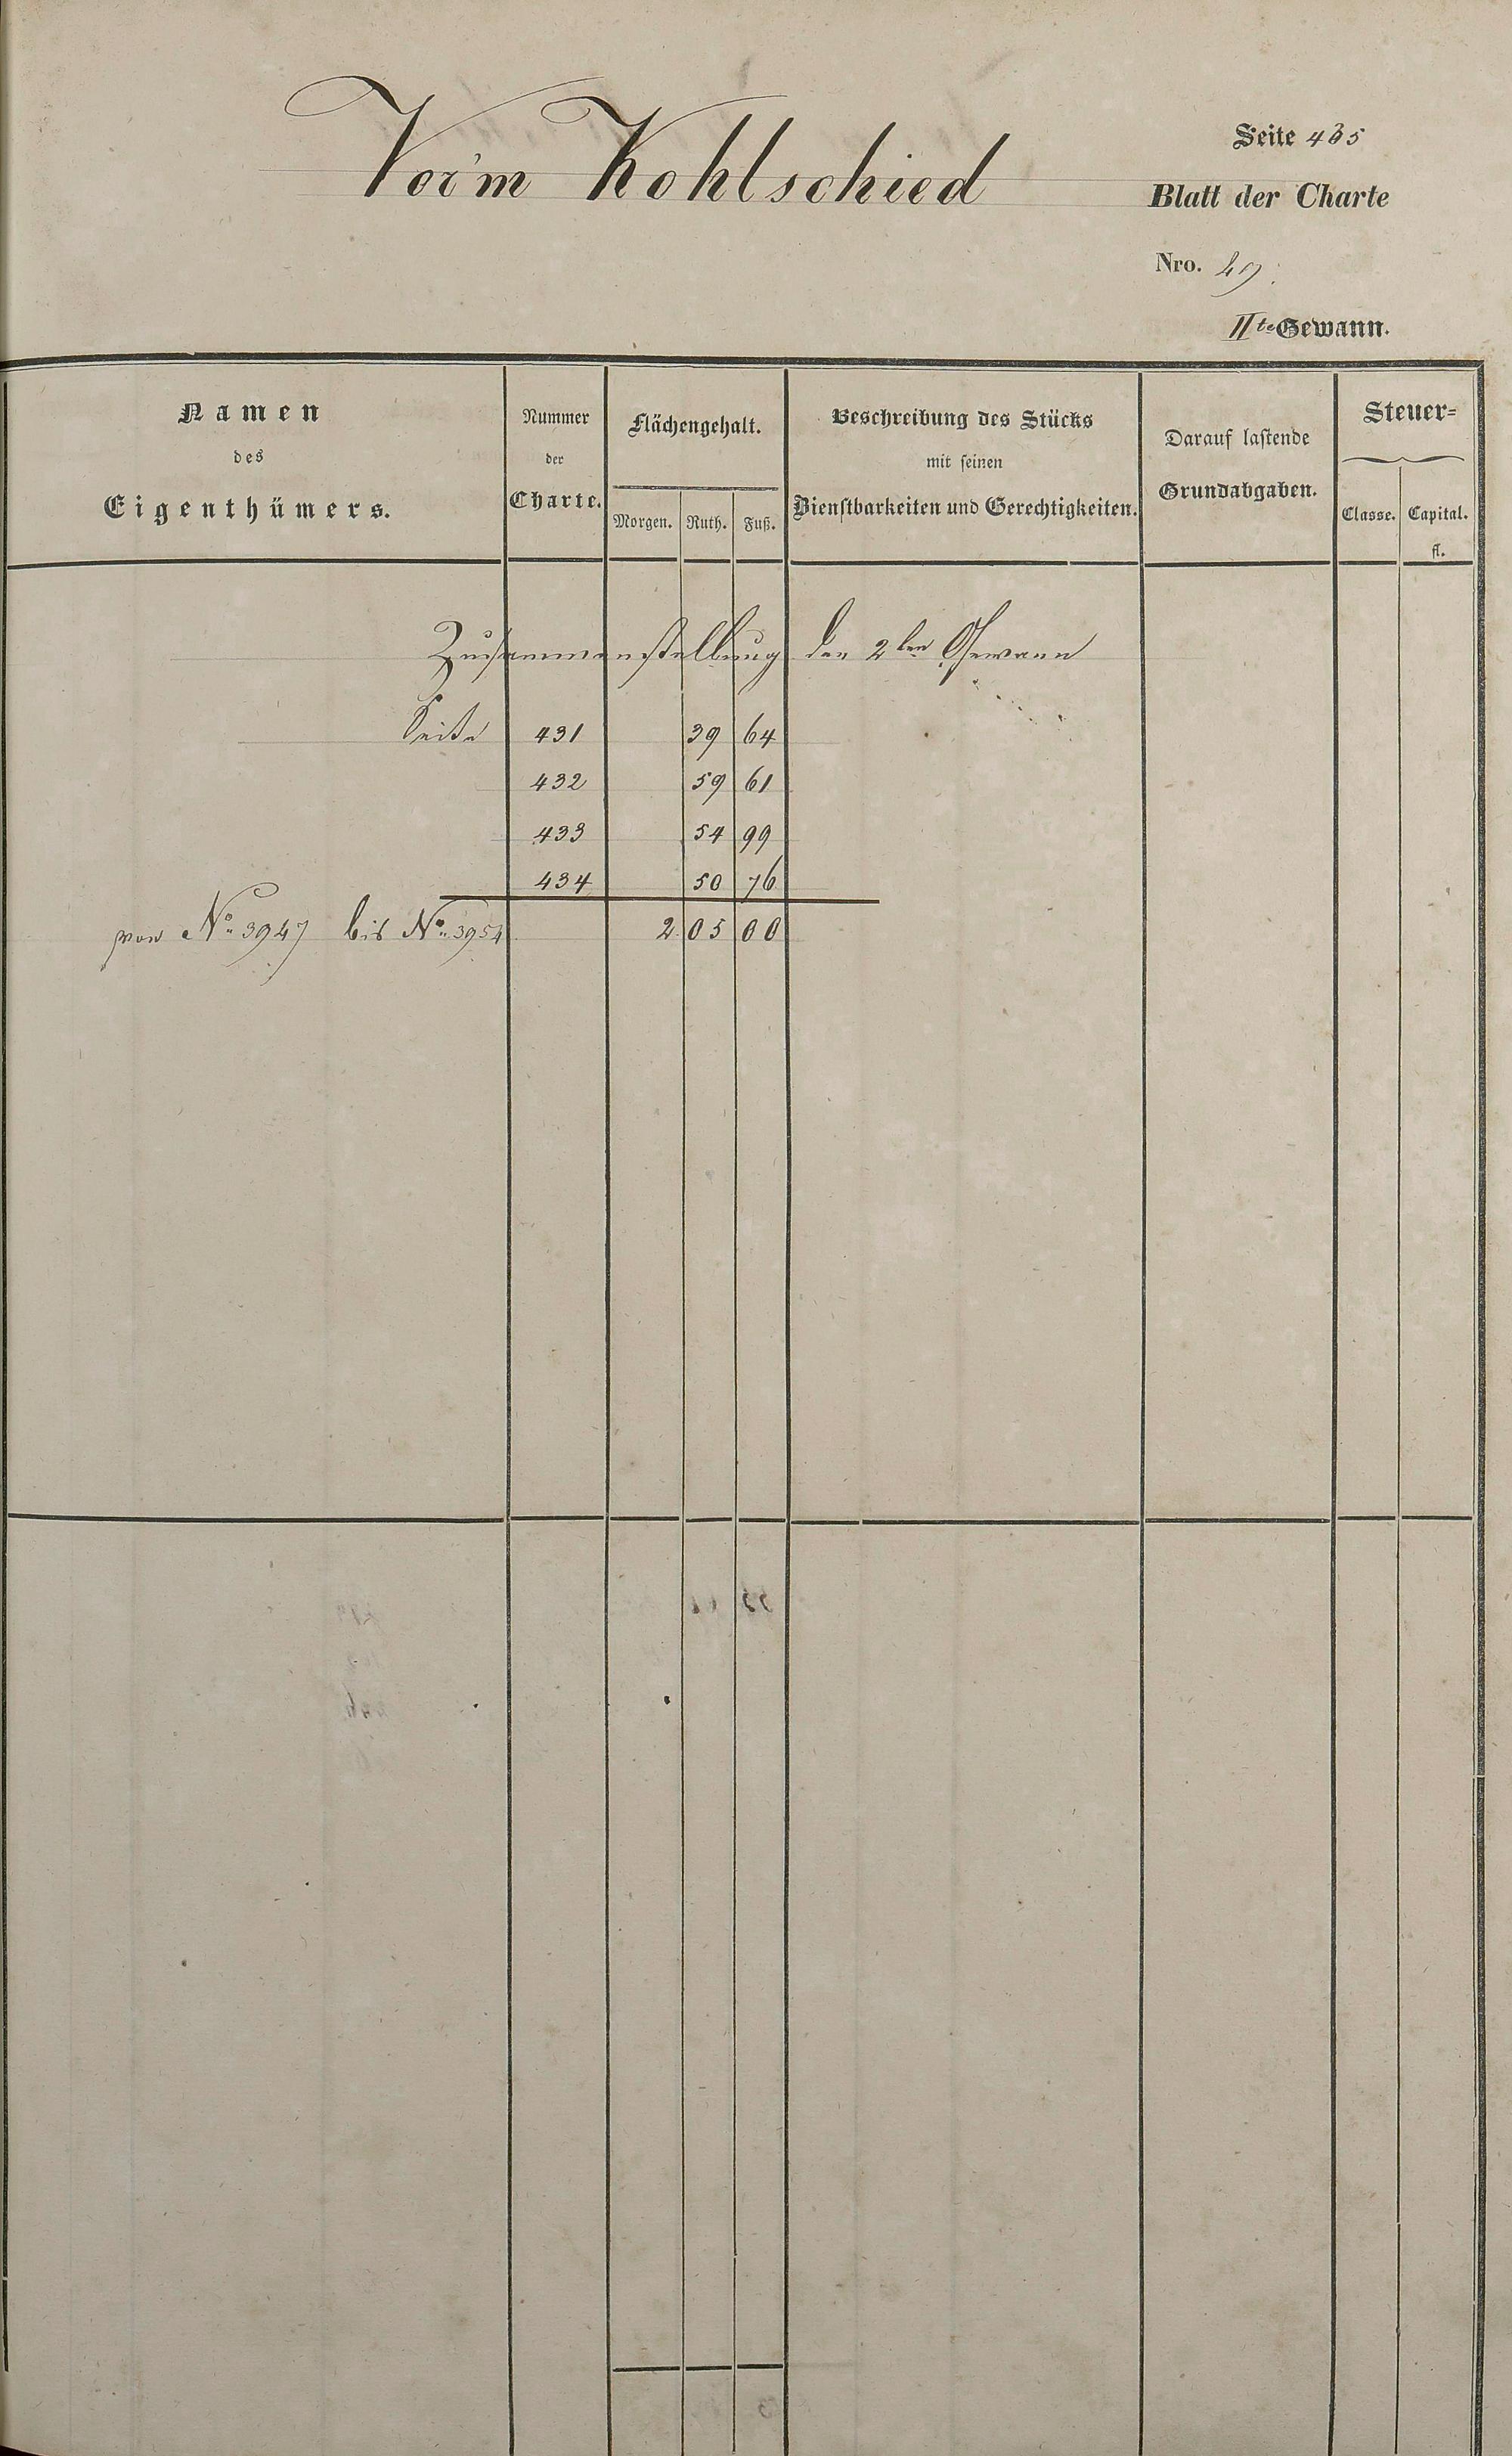 Seite 435
Vor'm Kohlschied
Blatt der Charte
Nro. 49.
IIte Gewann.
Namen
des
Eigenthümers.
Nummer
der
Charte.
Flächengehalt.
Morgen. Ruth. Fuß.
Beschreibung des Stücks
mit seinen
Dienstbarkeiten und Gerechtigkeiten.
Darauf lastende
Grundabgaben.
Steuer=
Classe. Capital.
fl.
Zusammenstellung der 2ten Gewann
Seite 431 39 64
432 59 61
433 54 99
434 50 76
von No. 3947 bis No. 3954 2 05 00